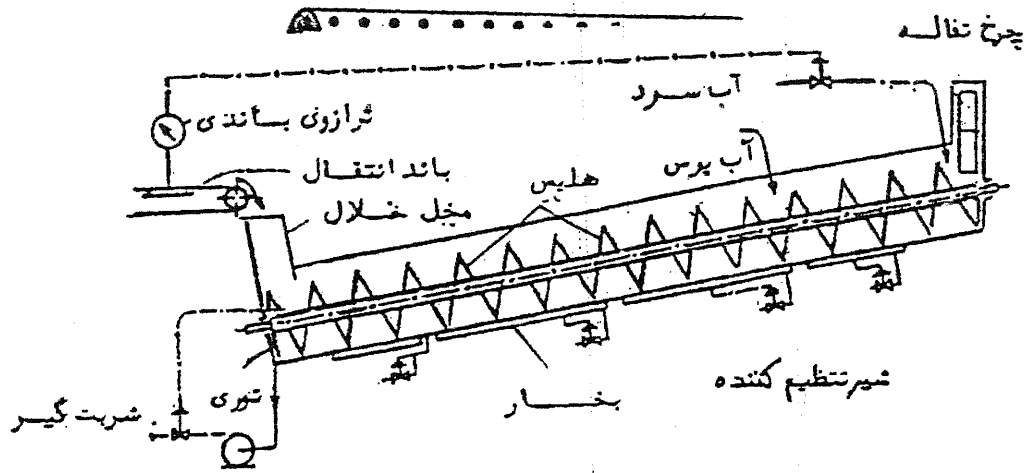 چرخ تفاله
آب سرد
ترازوی باندی
آب پرس
باند انتقال
هلیس
مخل خلال
شیر تنظیم کننده
توری
بخار
شربت گیر